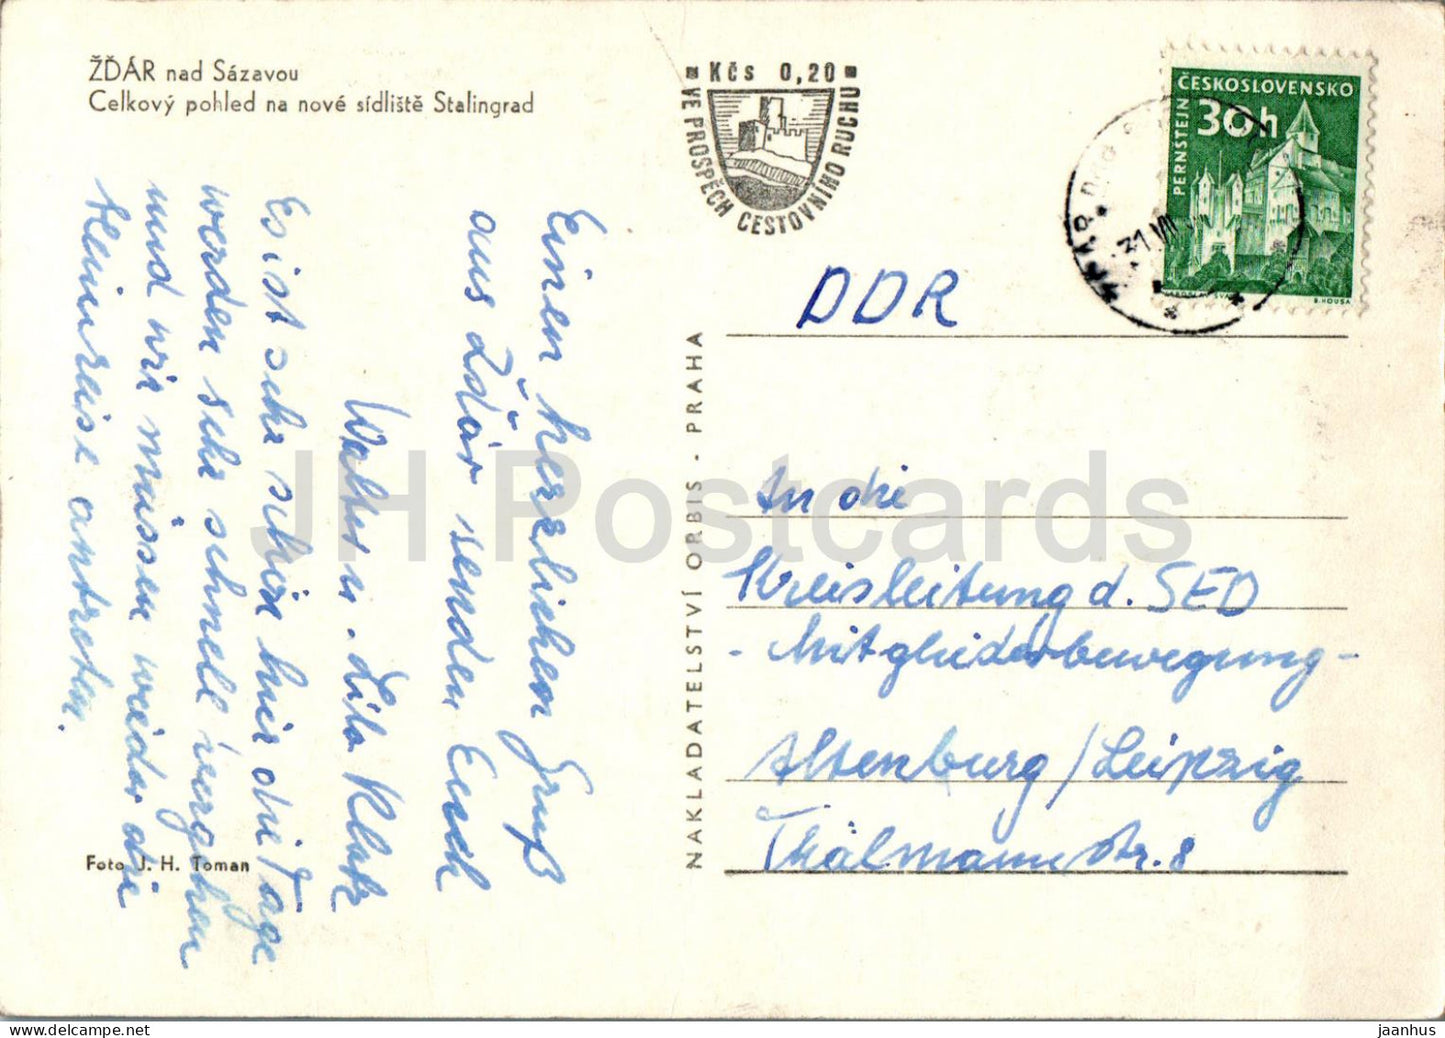 ŽĎÁR nad Sázavou
Celkový pohled na nové sídliště Stalingrad
Kčs 0,20
VE PROSPĚCH CESTOVNÍHO RUCHU
ČESKOSLOVENSKO
30h
PERNŠTEJN
B. HOUSA
31 VII
Einen herzlichen Gruß
aus Žďár senden Euch
Walter u. Lilo
Es ist sehr schön hier die Tage
werden sehr schnell vergehen
und wir müssen wieder die
Heimreise antreten.
Foto J. H. Toman
NAKLADATELSTVÍ ORBIS - PRAHA
DDR
An die
Kreisleitung d. SED
- Mitgliederbewegung -
Altenburg / Leipzig
Thälmannstr. 8
JH Postcards
jaanhus
https://www.delcampe.net